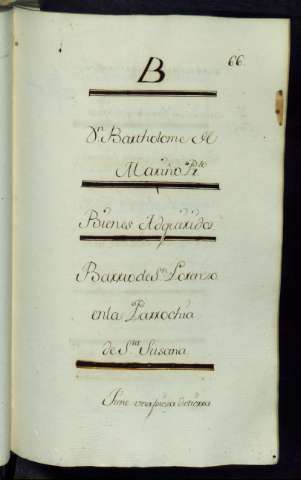 B 66
Dn. Bartholome M
Mariño Pro.
Bienes Adquiridos
Barrio de Sn. Lorenzo
en la Parrochia
de Sta. Susana
Tiene una pieza de tierra